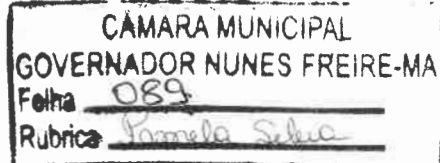 CÂMARA MUNICIPAL
GOVERNADOR NUNES FREIRE-MA
Folha 089
Rubrica Pamela